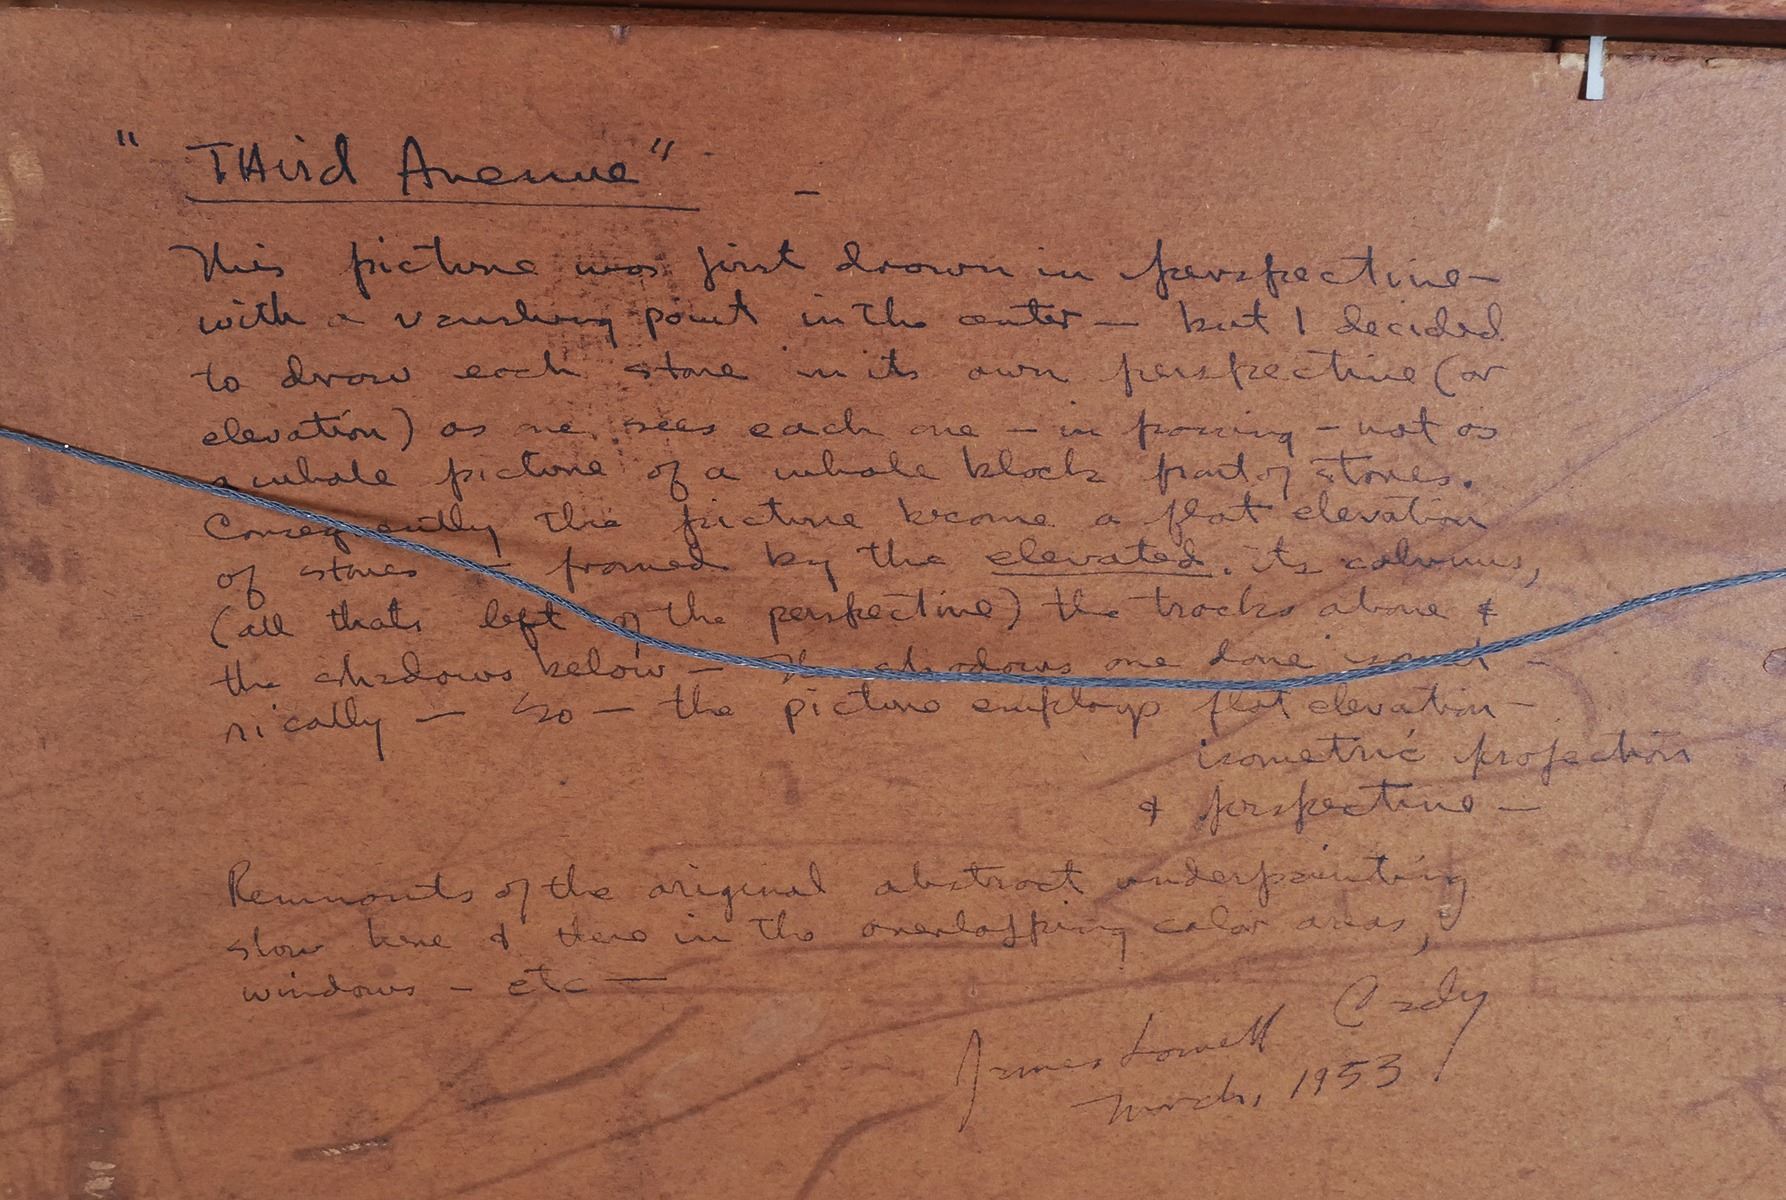 "Third Avenue" -
This picture was first drawn in perspective -
with a vanishing point in the center - but I decided
to draw each store in its own perspective (or
elevation) as one sees each one - in passing - not as
a whole picture of a whole block front of stores.
Consequently the picture became a flat elevation
of stores - framed by the elevated, its columns,
(all thats left of the perspective) the tracks above &
the shadows below - The shadows are done isomet -
rically - So - the picture employs flat elevation -
isometric projection
& perspective -
Remnants of the original abstract underpainting
show here & there in the overlapping color areas,
windows - etc -
James Lowell Cady
March, 1953